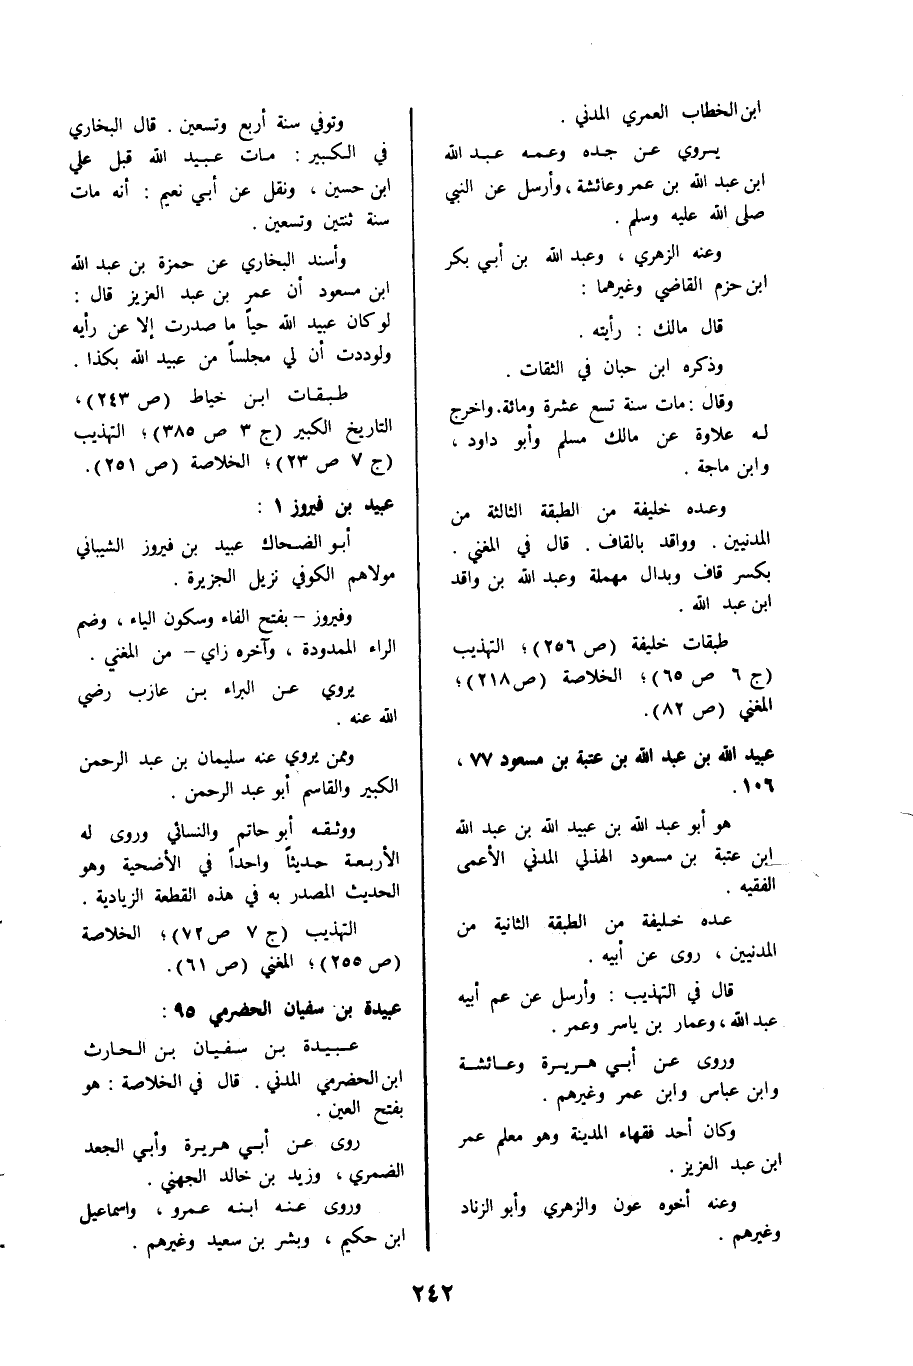 ابن الخطاب العمري المدني .
يروي عن جده وعمه عبد الله
ابن عبد الله بن عمر وعائشة ، وأرسل عن النبي
صلى الله عليه وسلم .
وعنه الزهري ، وعبد الله بن أبي بكر
ابن حزم القاضي وغيرهما :
قال مالك : رأيته .
وذكره ابن حبان في الثقات .
وقال : مات سنة تسع عشرة ومائة . واخرج
له علاوة عن مالك مسلم وأبو داود ،
وابن ماجة .
وعده خليفة من الطبقة الثالثة من
المدنيين . وواقد بالقاف . قال في المغني .
بكسر قاف وبدال مهملة وعبد الله بن واقد
ابن عبد الله .
طبقات خليفة (ص ٢٥٦)؛ التهذيب
(ج ٦ ص ٦٥)؛ الخلاصة (ص ٢١٨)؛
المغني (ص ٨٢).
عبيد الله بن عبد الله بن عتبة بن مسعود ٧٧ ،
١٠٦ .
هو أبو عبد الله بن عبيد الله بن عبد الله
ابن عتبة بن مسعود الهذلي المدني الأعمى
الفقيه .
عده خليفة من الطبقة الثانية من
المدنيين ، روى عن أبيه .
قال في التهذيب : وأرسل عن عم أبيه
عبد الله ، وعمار بن ياسر وعمر .
وروى عن أبي هريرة وعائشة
وابن عباس وابن عمر وغيرهم .
وكان أحد فقهاء المدينة وهو معلم عمر
ابن عبد العزيز .
وعنه أخوه عون والزهري وأبو الزناد
وغيرهم .
وتوفي سنة أربع وتسعين . قال البخاري
في الكبير : مات عبيد الله قبل علي
ابن حسين ، ونقل عن أبي نعيم : أنه مات
سنة ثنتين وتسعين .
وأسند البخاري عن حمزة بن عبد الله
ابن مسعود أن عمر بن عبد العزيز قال :
لو كان عبيد الله حياً ما صدرت إلا عن رأيه
ولوددت أن لي مجلساً من عبيد الله بكذا .
طبقات ابن خياط (ص ٢٤٣)،
التاريخ الكبير (ج ٣ ص ٣٨٥)؛ التهذيب
(ج ٧ ص ٢٣)؛ الخلاصة (ص ٢٥١).
عبيد بن فيروز ١ :
أبو الضحاك عبيد بن فيروز الشيباني
مولاهم الكوفي نزيل الجزيرة .
وفيروز – بفتح الفاء وسكون الياء ، وضم
الراء الممدودة ، وآخره زاي – من المغني .
يروي عن البراء بن عازب رضي
الله عنه .
وممن يروي عنه سليمان بن عبد الرحمن
الكبير والقاسم أبو عبد الرحمن .
ووثقه أبو حاتم والنسائي وروى له
الأربعة حديثاً واحداً في الأضحية وهو
الحديث المصدر به في هذه القطعة الزيادية .
التهذيب (ج ٧ ص ٧٢)؛ الخلاصة
(ص ٢٥٥)؛ المغني (ص ٦١).
عبيدة بن سفيان الحضرمي ٩٥ :
عبيدة بن سفيان بن الحارث
ابن الحضرمي المدني . قال في الخلاصة : هو
بفتح العين .
روى عن أبي هريرة وأبي الجعد
الضمري ، وزيد بن خالد الجهني .
وروى عنه ابنه عمرو ، واسماعيل
ابن حكيم ، وبشر بن سعيد وغيرهم .
٢٤٢